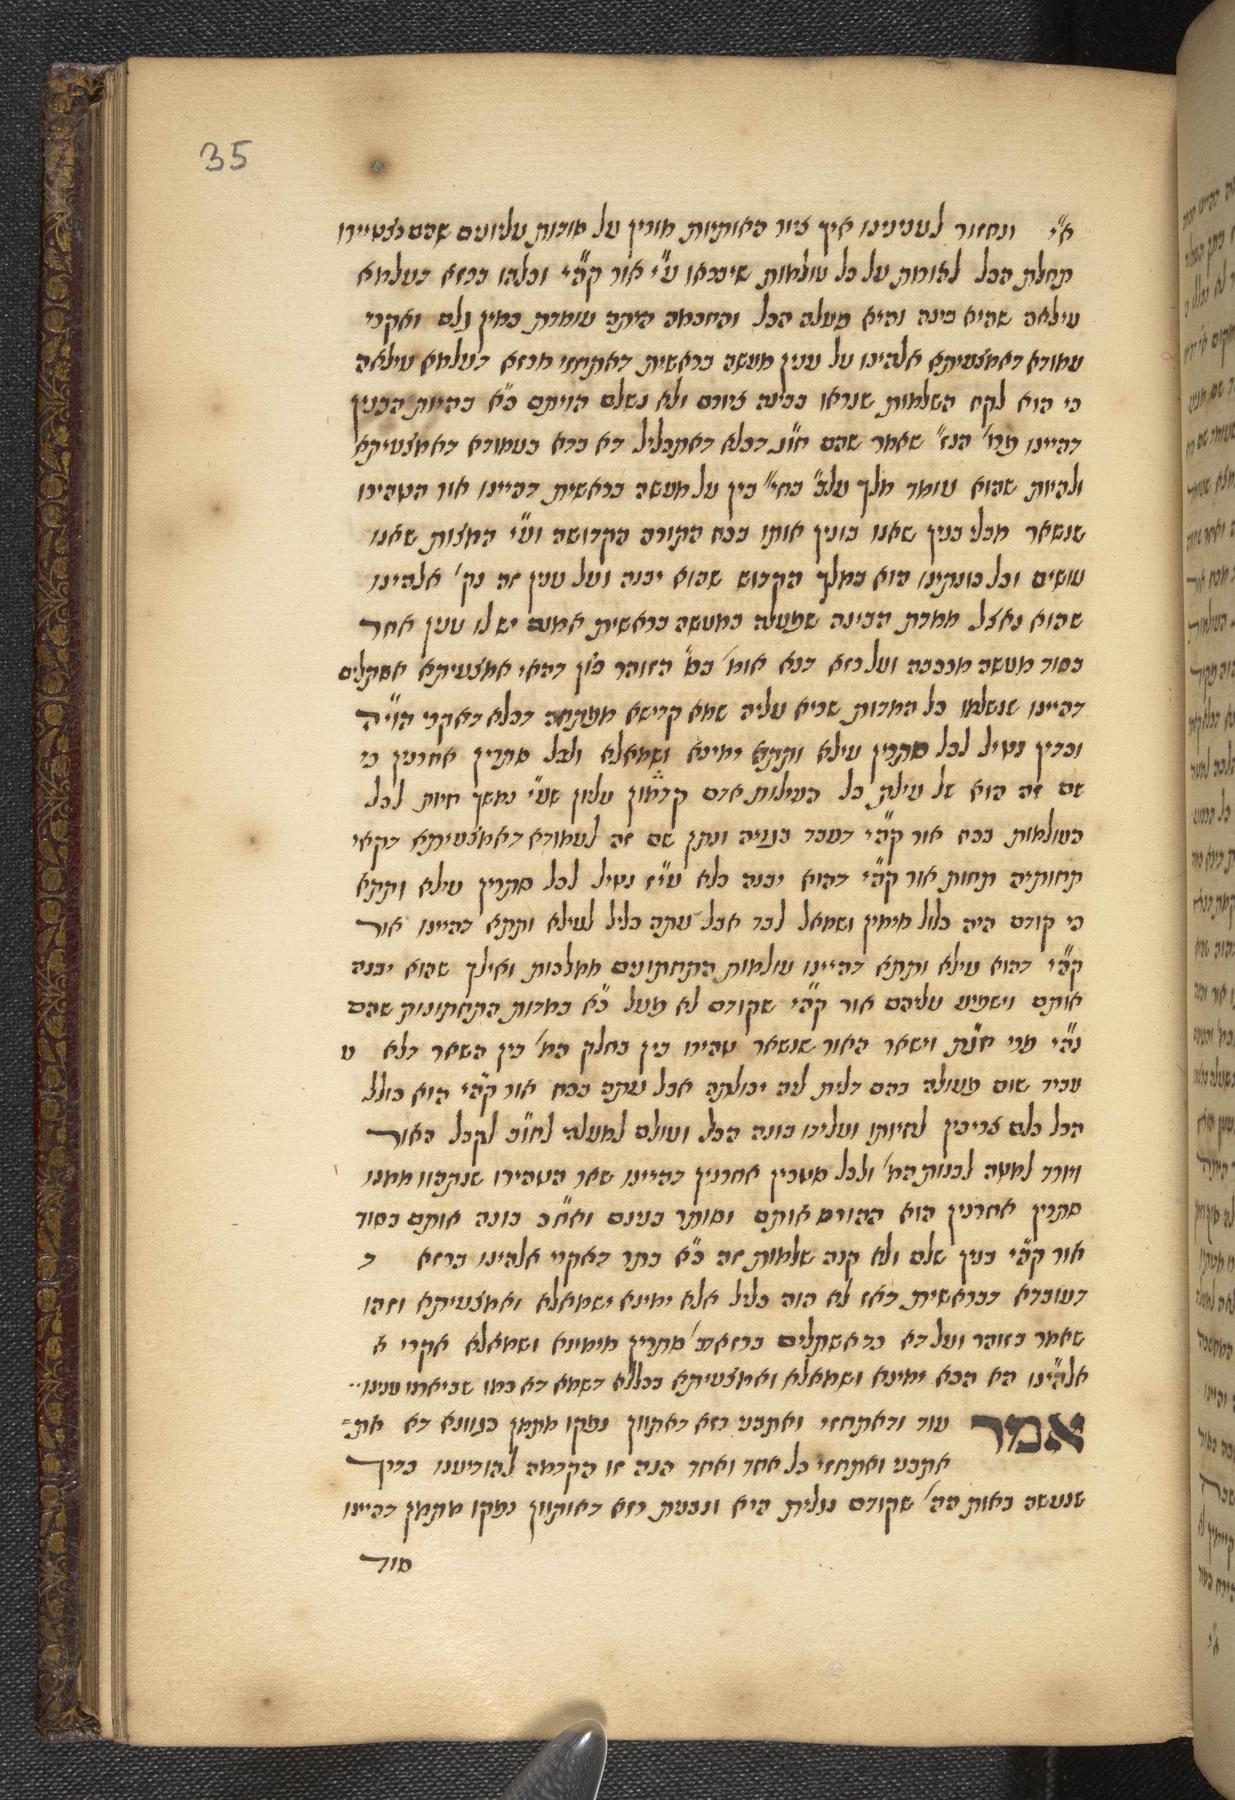 35
א"י ונחזור לענינינו איך ציור האותיות מורין על מדות עליונים שהם נצטיירו
תחלת הכל להורות על כל עולמות שיבראו ע"י אור ק"הי וכלהו ברזא בעלמא
עילאה שהיא בינה והיא מעלה הכל והחכמה היתה עומדת כמין גלם ואקרי
עמודא דאמצעיתא אלהינו על ענין מעשה בראשית דאתחזי מרזא דעלמא עילאה
כי הוא לקח השלמות שנראו בבינה ציורם ולא נשלם הויתם כ"א בהיות הבנין
דהיינו מ"ש הנז' שאמר שהם דכלא דאתכליל דא בדא בעמודא דאמצעיתא
ולהיות שהוא עומד מלך בין על מעשה בראשית דהיינו אור הטהירו
שנשאר מבלי בנין שאנו בונין אותו בכח התורה הקדושה וע"י המצות שאנו
עושים וכל כונתינו הוא במלך הקדוש שהוא יבנה ועל ענין זה נק' אלהינו
שהוא נאצל ממדת הבינה שמעלה במעשה בראשית אמנם יש לו ענין אחר
בסוד מעשה מרכבה ועל רזא דנא אומ' בס' הזוהר כיון דהאי אמצעיתא אסתלים
דהיינו שנשלמו כל המדות שריא עליה שמא קדישא מפתחה דכלא דאקרי הוי"ה
וכדין נטיל לכל סטרין עילא ותתא ימינא ושמאלא ולכל סטרין אחרנין כי
שם זה הוא של עילת כל העילות אדם קדמון עליון שע"י נמשך חיות לכל
העולמות בכח אור ק"הי דעבר בגויה ונתן שם זה לעמודא דאמצעיתא דקאי
תחותיה תחות אור ק"הי דהוא יבנה כלא ע"ז נטיל לכל סטרין עילא ותתא
כי קודם היה כלול מימין ושמאל לבד אבל עתה כליל לעילא ותתא דהיינו אור
ק"הי דהוא עילא ותתא דהיינו עולמות התחתונים ממלכות ואילך שהוא יבנה
אותם וישפיע עליהם אור ק"הי שקודם לא פעל כ"א במדות התחתונות שהם
נ"הי וישאר האור שנשאר טהירו בין בחלק המ' בין השאר דלא ע
עביד שום פעולה בהם דלית ליה יכולתה אבל עתה בכח אור ק"הי הוא כולל
הכל כלם צריכין לחיותו ועלינו בונה הכל ועולם למעלה לקבל האור
ויורד למטה לבנות המ' ולכל סטרין אחרנין דהיינו שאר הטהירו שנתהוו ממנו
סטרין אחרנין הוא ההורס אותם וסותר בנינם ואח"כ בונה אותם בסוד
אור ק"הי בנין שלם ולא קנה שלמות זה כ"א בתר דאקרי אלהינו ברזא ד
דעובדא דבראשית דאז לא הוה כליל אלא ימינא ושמאלא ואמצעיתא וזהו
שאמר בזוהר ועל דא כד אשתלים ברזא דב' סטרין מימינא ושמאלא אקרי א
אלהינו הא הכא ימינא ושמאלא ואמצעיתא בכללא דשמא דא כמו שביארנו ענינו
אמר עוד ודאתחזי ואתבע רזא דאתוון נפקו מתמן כגוונא דא את
אתבע ואתחזי כל אחד ואחד הנה זו הקדמה להודיענו בדרך
שנעשה באות הה' שקודם נגלית היא ונבעת רזא דאותוון נפקו מתמן דהיינו
סוד